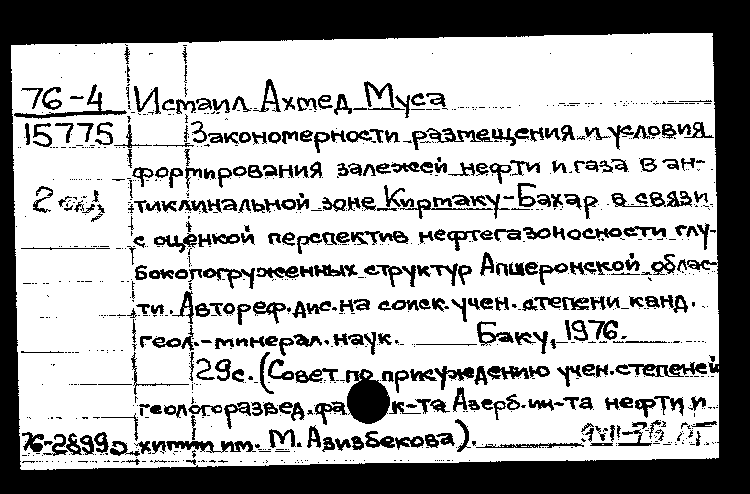 76-4 Исмаил Ахмед Муса
15775 Закономерности размещения и условия
формирования залежей нефти и газа в ан-
2 тиклинальной зоне Киртаку-Бахар в связи
с оценкой перспектив нефтегазоносности глу-
бокопогруженных структур Апшеронской облас-
ти. Автореф.дис.на соиск.учен.степени канд.
геол.-минерал.наук. Баку, 1976.
29с. (Совет по присуждению учен.степеней
геологоразвед.фа к-та Азерб.ин-та нефти и
76-2899 химии им. М.Азизбекова).